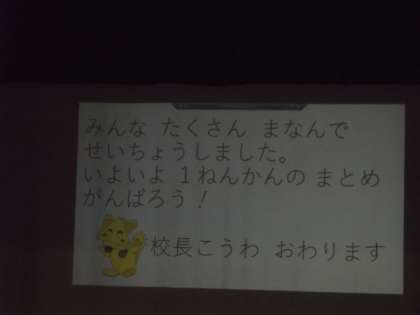 みんな たくさん まなんで
せいちょうしました。
いよいよ 1ねんかんの まとめ
がんばろう！
校長こうわ おわります